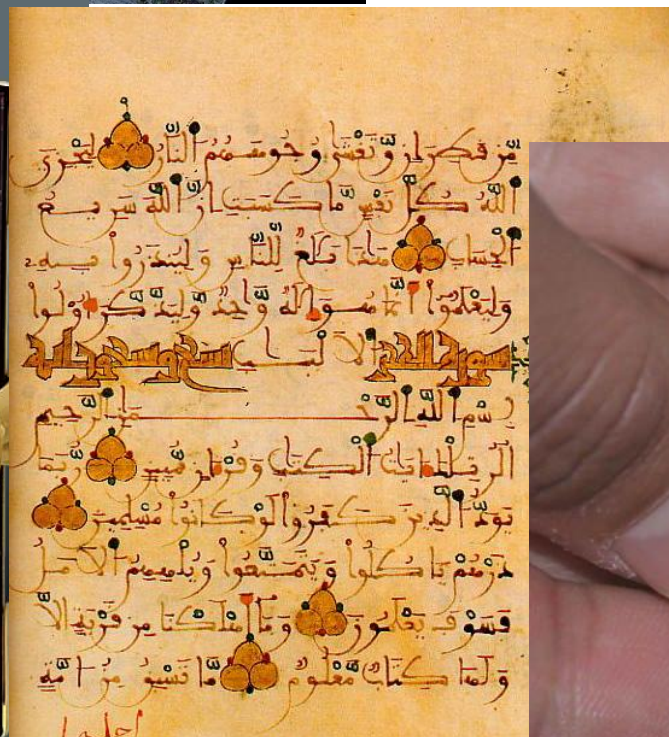 مِّن قَطِرَانٍ وَّتَغْشَىٰ وُجُوهَهُمُ النَّارُ لِيَجْزِيَ
اللَّهُ كُلَّ نَفْسٍ مَّا كَسَبَتْ إِنَّ اللَّهَ سَرِيعُ
الْحِسَابِ هَٰذَا بَلَٰغٌ لِّلنَّاسِ وَلِيُنذَرُواْ بِهِۦ
وَلِيَعْلَمُواْ أَنَّمَا هُوَ إِلَٰهٌ وَّاحِدٌ وَّلِيَذَّكَّرَ أُوْلُواْ
سورة الحجر الْأَلْبَٰبِ تسع وتسعون اية
بِسْمِ اللَّهِ الرَّحْمَٰنِ الرَّحِيمِ
الٓر تِلْكَ ءَايَٰتُ الْكِتَٰبِ وَقُرْءَانٍ مُّبِينٍ رُّبَمَا
يَوَدُّ الَّذِينَ كَفَرُواْ لَوْ كَانُواْ مُسْلِمِينَ
ذَرْهُمْ يَأْكُلُواْ وَيَتَمَتَّعُواْ وَيُلْهِهِمُ الْأَمَلُ
فَسَوْفَ يَعْلَمُونَ وَمَا أَهْلَكْنَا مِن قَرْيَةٍ إِلَّا
وَلَهَا كِتَابٌ مَّعْلُومٌ مَّا تَسْبِقُ مِنْ أُمَّةٍ
اجلها